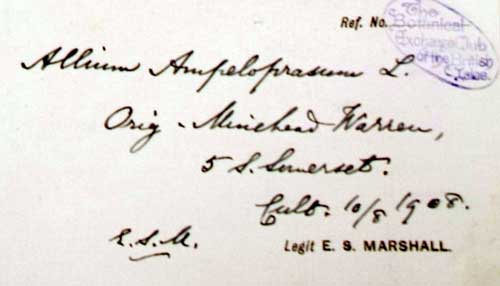 Ref. No.
The
Botanical
Exchange Club
of the British
Isles.
Allium Ampeloprasum L.
Orig - Minehead Warren,
5 S. Somerset.
Cult. 10/8 1908.
E.S.M.
Legit E. S. MARSHALL.